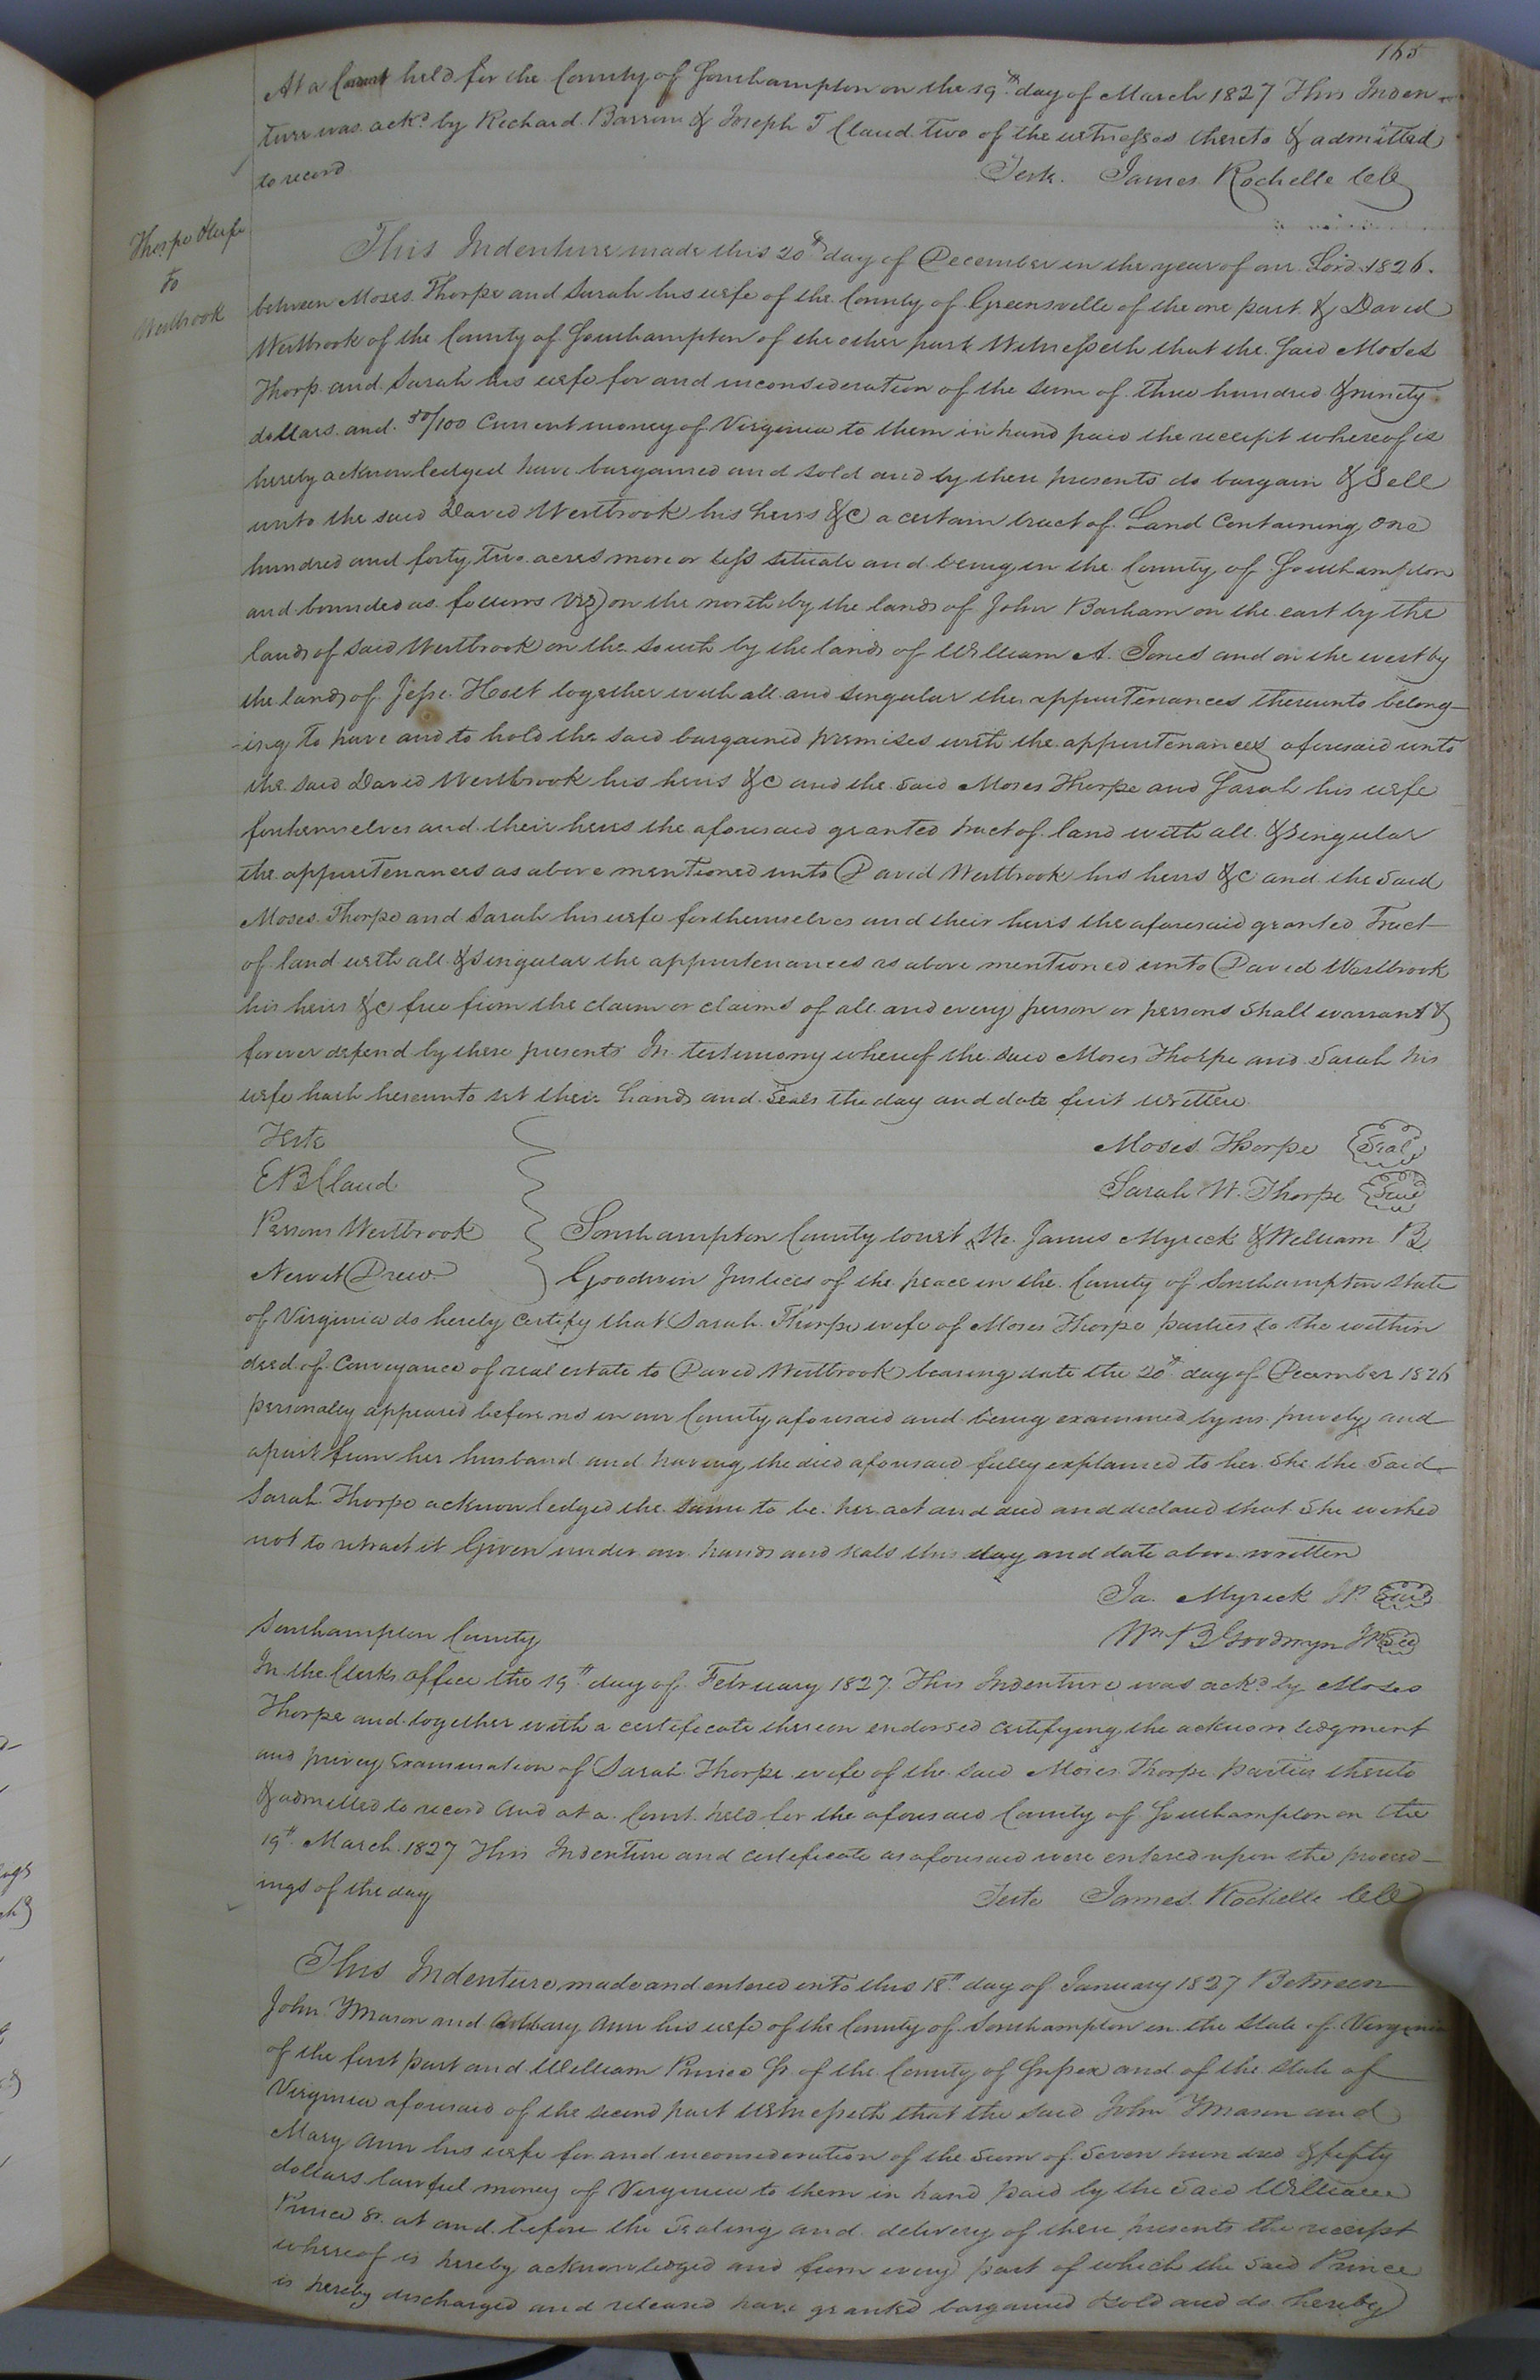 165
At a Court held for the County of Southampton on the 19th day of March 1827 This Inden-
ture was ackd by Richard Barrow & Joseph T Claud two of the witnesses thereto & admitted
to record
Teste. James Rochelle CCC
Thorpe & wife
to
Westbrook
This Indenture made this 20th day of December in the year of our Lord 1826.
between Moses Thorpe and Sarah his wife of the County of Greensville of the one part & David
Westbrook of the County of Southampton of the other part Witnesseth that the Said Moses
Thorp and Sarah his wife for and in consideration of the sum of three hundred & ninety
dollars and 50/100 Current money of Virginia to them in hand paid the receipt whereof is
hereby acknowledged have bargained and sold and by these presents do bargain & Sell
unto the said David Westbrook his heirs &c a certain tract of Land Containing one
hundred and forty two acres more or less situate and being in the County of Southampton
and bounded as follows Viz) on the north by the lands of John Barham on the east by the
lands of said Westbrook on the south by the lands of William A. Jones and on the west by
the lands of Jesse Holt together with all and singular the appurtenances thereunto belong-
-ing to have and to hold the said bargained premises with the appurtenances aforesaid unto
the said David Westbrook his heirs &c and the said Moses Thorpe and Sarah his wife
for themselves and their heirs the aforesaid granted tract of land with all & Singular
the appurtenances as above mentioned unto David Westbrook his heirs &c and the said
Moses Thorpe and Sarah his wife for themselves and their heirs the aforesaid granted Tract
of land with all & singular the appurtenances as above mentioned unto David Westbrook
his heirs &c free from the claim or claims of all and every person or persons shall warrant &
forever defend by these presents In testimony whereof the said Moses Thorpe and Sarah his
wife hath hereunto set their hands and seals the day and date first written
Teste
Moses Thorpe Seal
E B Claud
Sarah W. Thorpe Seal
Parsons Westbrook
Southampton County Court We James Myrick & William B
Newit Drew
Goodwin Justices of the peace in the County of Southampton State
of Virginia do hereby certify that Sarah Thorpe wife of Moses Thorpe parties to the within
deed of Conveyance of real estate to David Westbrook bearing date the 20th day of December 1826
personally appeared before us in our County aforesaid and being examined by us prively and
apart from her husband and having the deed aforesaid fully explained to her She the Said
Sarah Thorpe acknowledged the same to be her act and deed and declared that She wished
not to retract it Given under our hands and seals this day and date above written
Ja. Myrick JP Seal
Southampton County
Wm B Goodwyn JP Seal
In the Clerks office the 19th day of February 1827. This Indenture was ackd by Moses
Thorpe and together with a certificate thereon endorsed certifying the acknowledgment
and privey Examination of Sarah Thorpe wife of the said Moses Thorpe parties thereto
& admitted to record And at a Court held for the aforesaid County of Southampton on the
19th March 1827 This Indenture and certificate as aforesaid were entered upon the proceed-
ings of the day
Teste James Rochelle CCC
This Indenture made and entered into this 18th day of January 1827 Between
John Y Mason and Mary Ann his wife of the County of Southampton in the State of Virginia
of the first part and William Prince Sr of the County of Sussex and of the State of
Virginia aforesaid of the second part Witnesseth that the said John Y Mason and
Mary Ann his wife for and in consideration of the Sum of Seven hundred & fifty
dollars lawful money of Virginia to them in hand paid by the Said William
Prince Sr. at and before the Sealing and delivery of these presents the receipt
whereof is hereby acknowledged and from every part of which the said Prince
is hereby discharged and released have granted bargained Sold and do hereby